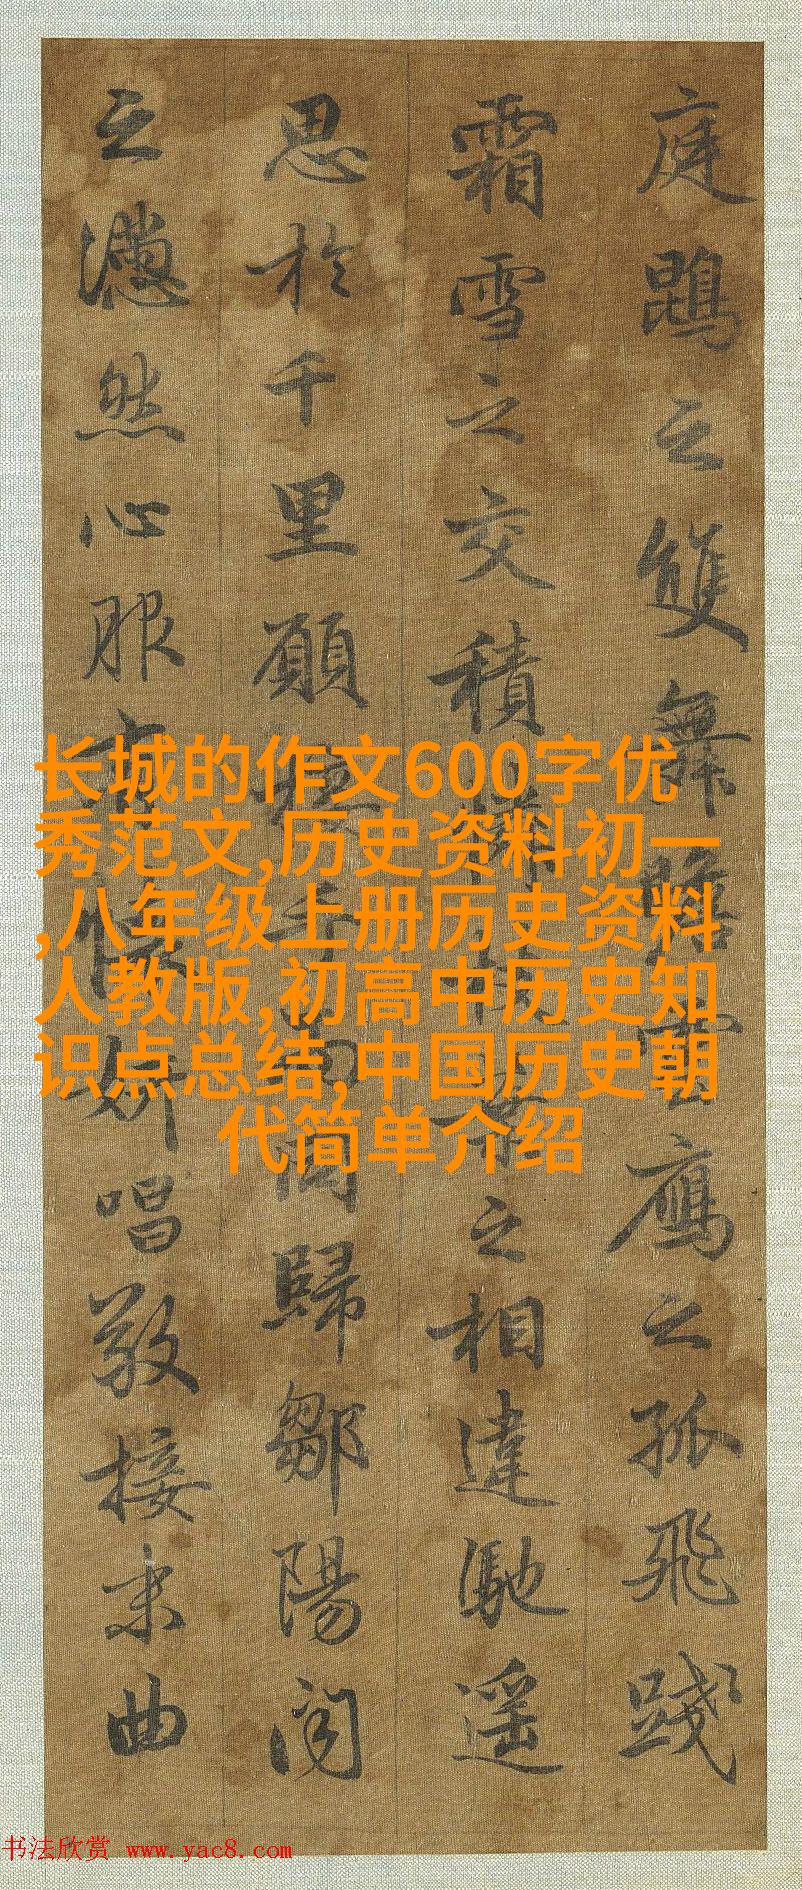 庭鵾之雙舞瞻雲鴈之孤飛踐
霜雪之交積憐枝葉之相違馳遥
思於千里願接手而同歸鄒陽聞
之懣然心服有懷妍唱敬接末曲
长城的作文600字优
秀范文,历史资料初一
,八年级上册历史资料
人教版,初高中历史知
识点总结,中国历史朝
代简单介绍
书法欣赏 www.yac8.com